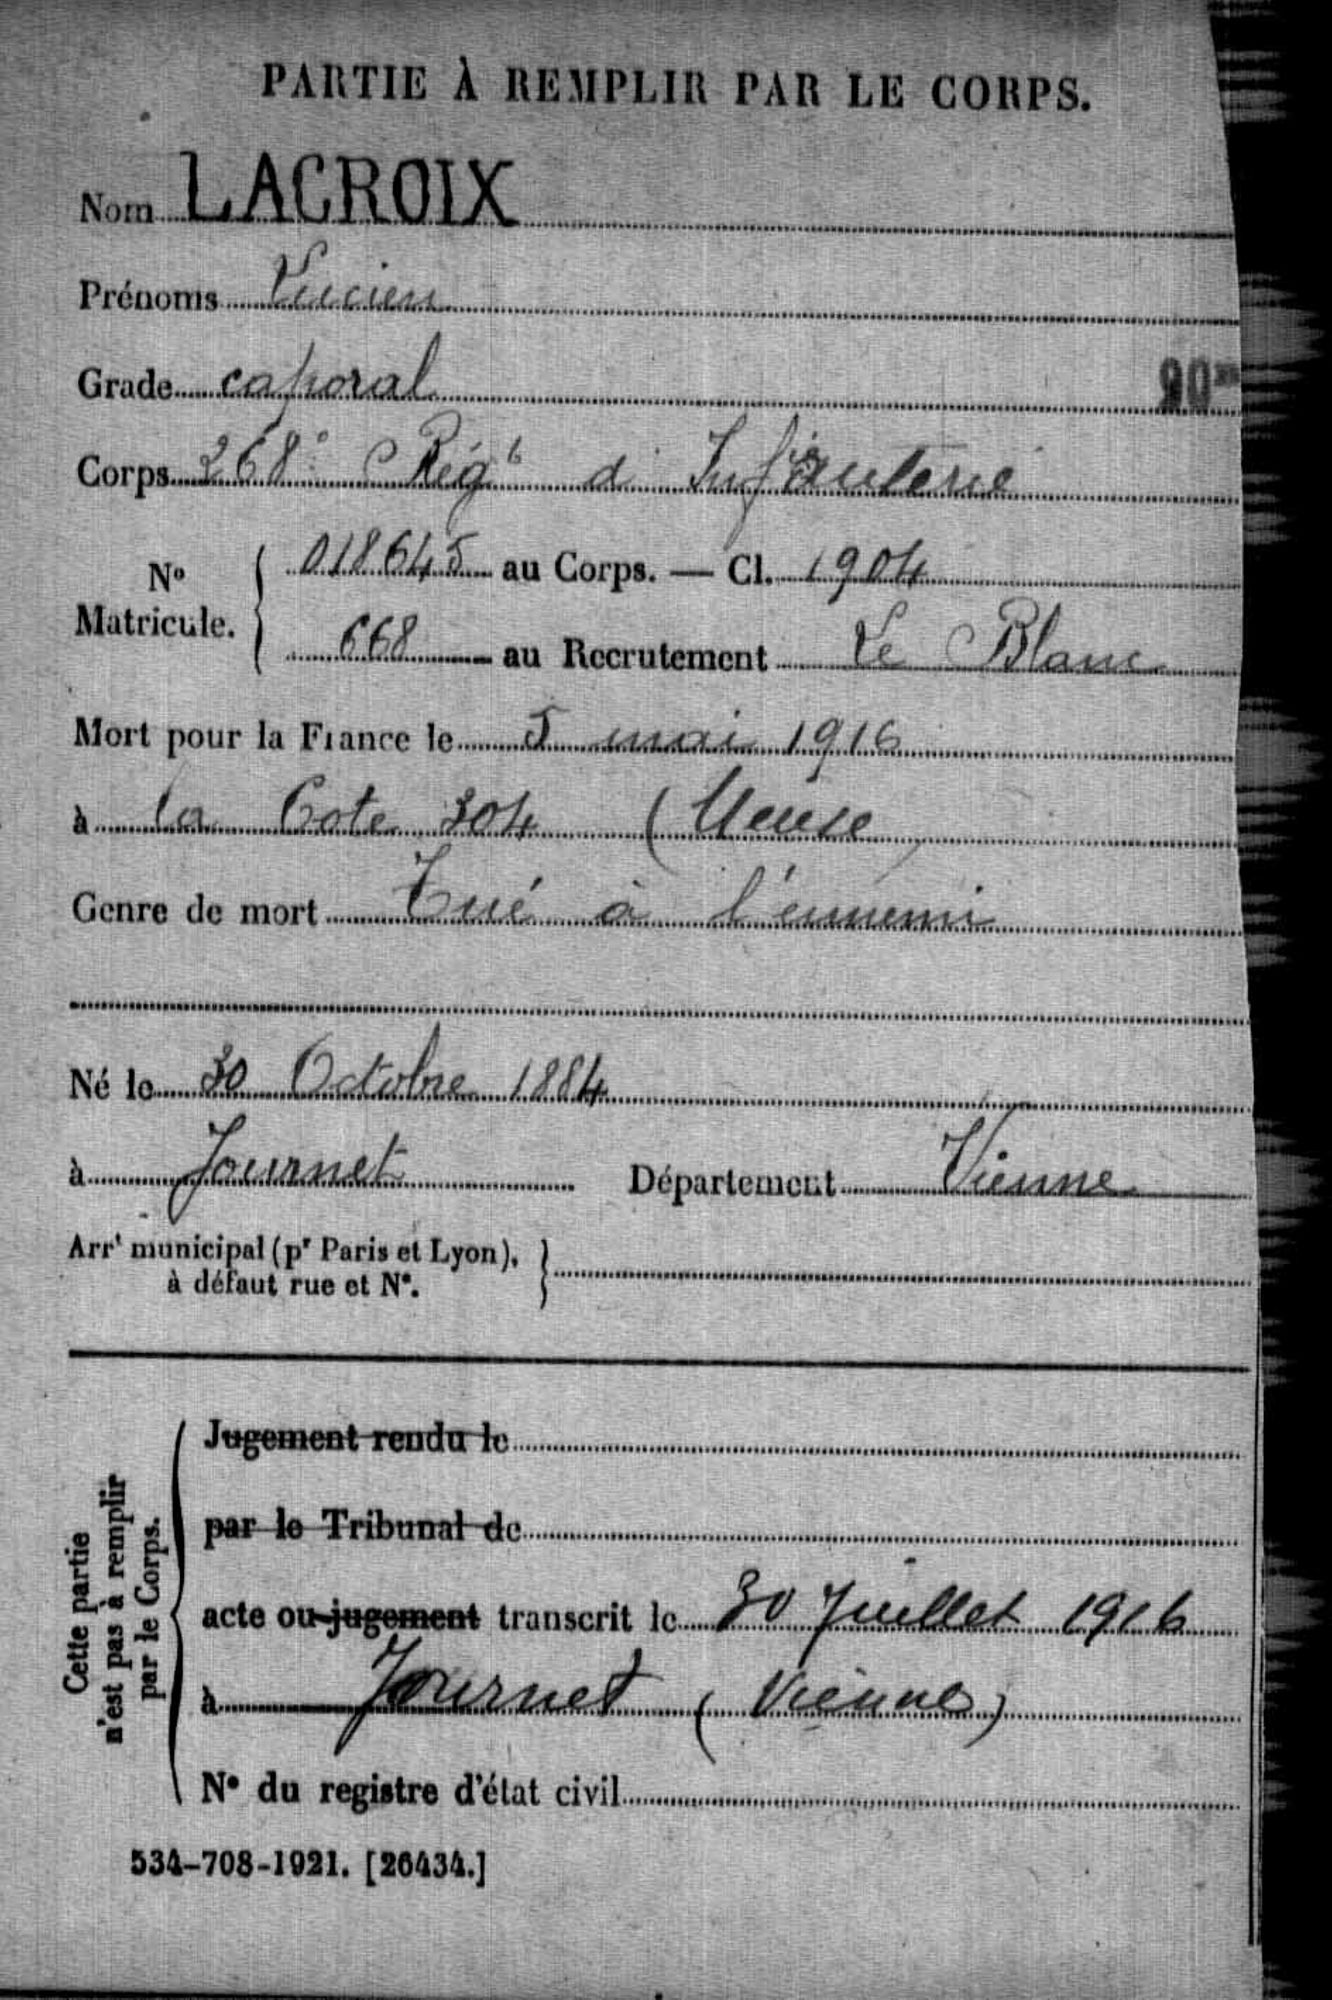 PARTIE À REMPLIR PAR LE CORPS.
Nom LACROIX
Prénoms Lucien
Grade caporal
90
Corps 268e Régt d'Infanterie
No Matricule. 018645 au Corps. — Cl. 1904
668 au Recrutement Le Blanc
Mort pour la France le 5 mai 1916
à la Cote 304 (Meuse)
Genre de mort Tué à l'ennemi
Né le 30 Octobre 1884
à Journet Département Vienne
Arrt municipal (pr Paris et Lyon),
à défaut rue et No.
Cette partie
n'est pas à remplir
par le Corps.
Jugement rendu le
par le Tribunal de
acte ou jugement transcrit le 30 Juillet 1916
à Journet (Vienne)
No du registre d'état civil
534-708-1921. [26434.]